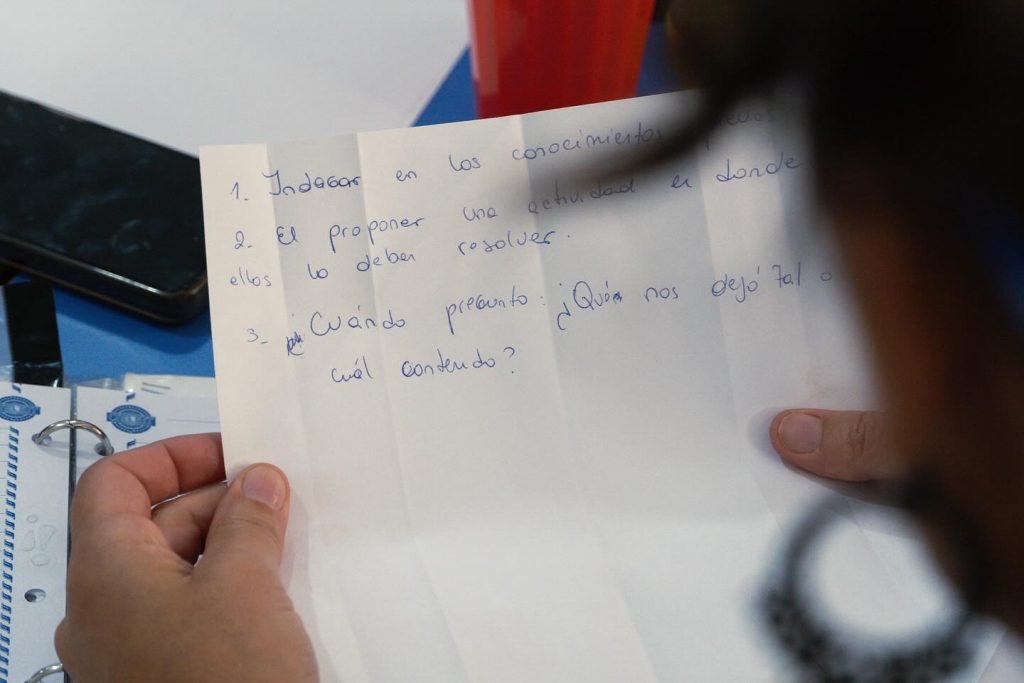 1. Indagar en los conocimientos
2. El proponer una actividad en donde
ellos lo deben resolver.
3. Cuándo pregunto: ¿Qué nos dejó tal o
cuál contenido?